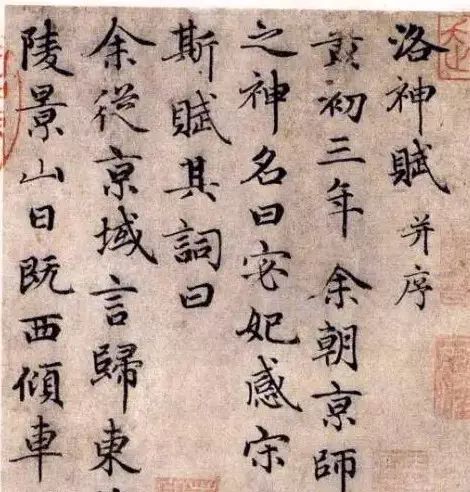 洛神賦 并序
黃初三年余朝京師
之神名曰宓妃感宋
斯賦其詞曰
余從京域言歸東
陵景山日既西傾車